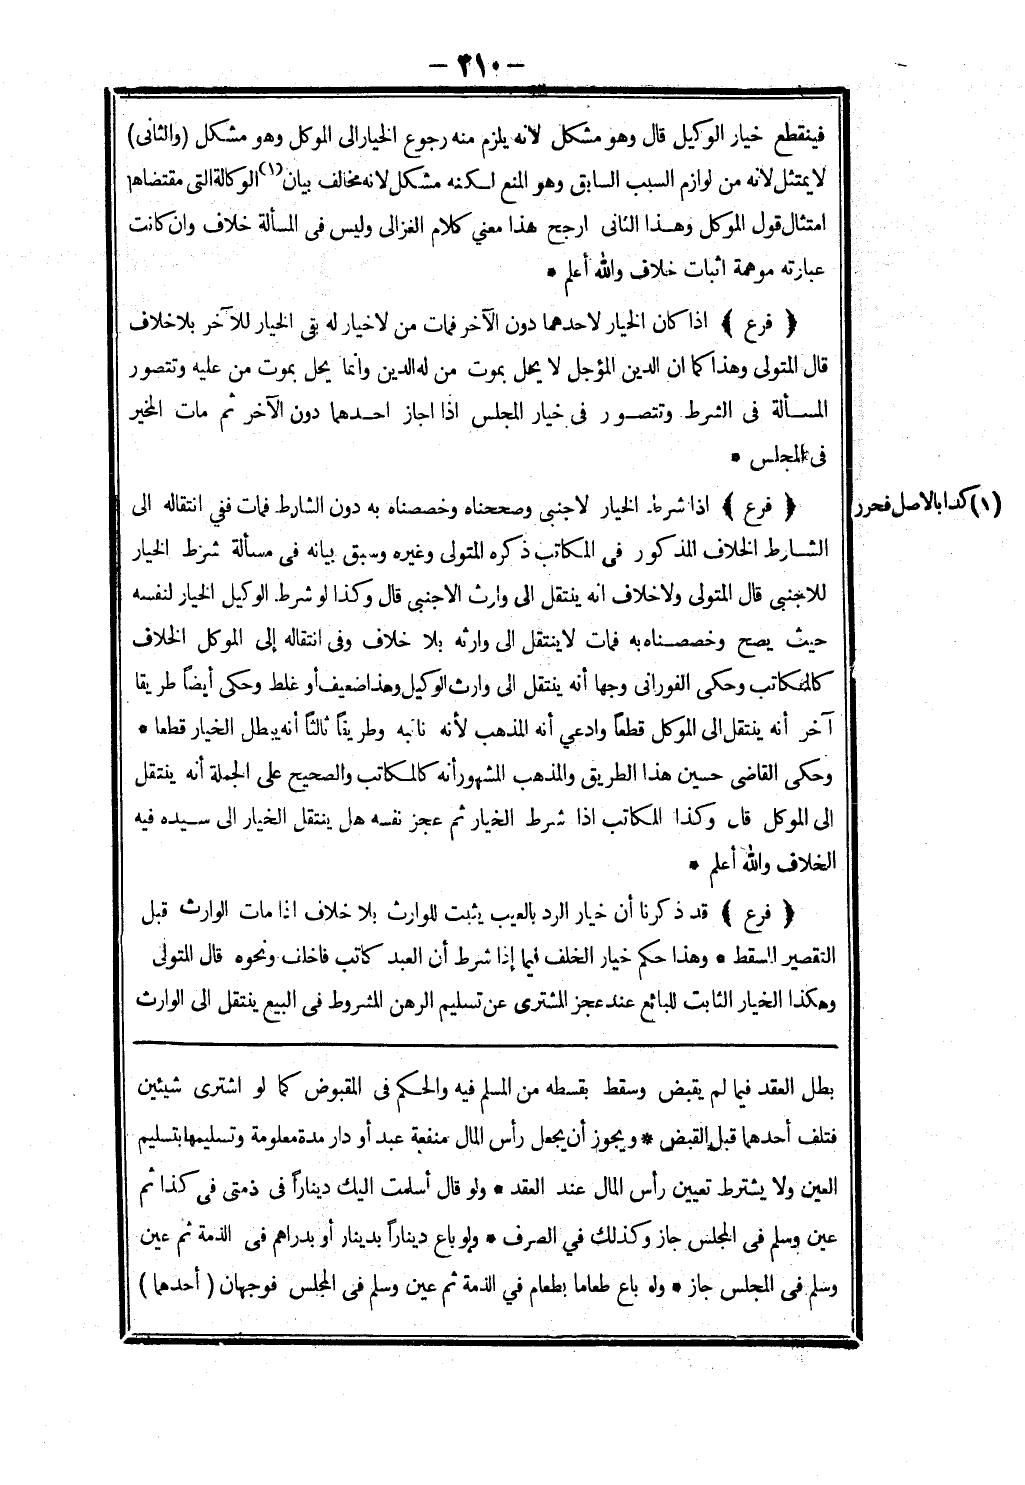 — ٢١٠ —
فينقطع خيار الوكيل قال وهو مشكل لانه يلزم منه رجوع الخيار الى الموكل وهو مشكل (والثانى)
لا يمتثل لانه من لوازم السبب السابق وهو المنع لكنه مشكل لانه مخالف بيان (١) الوكالة التى مقتضاها
امتثال قول الموكل وهـذا الثانى ارجح هذا معنى كلام الغزالى وليس فى المسألة خلاف وان كانت
عبارته موهمة اثبات خلاف والله أعلم *
﴿ فرع ﴾ اذا كان الخيار لاحدهما دون الآخر فمات من لا خيار له بقى الخيار للآخر بلا خلاف
قال المتولى وهذا كما ان الدين المؤجل لا يحل بموت من له الدين وانما يحل بموت من عليه وتتصور
المسـألة فى الشرط وتتصـور فى خيار المجلس اذا اجاز احـدهما دون الآخر ثم مات المخير
فى المجلس *
﴿ فرع ﴾ اذا شرط الخيار لاجنبى وصححناه وخصصناه به دون الشارط فمات ففي انتقاله الى
(١) كذا بالاصل فحرر
الشـارط الخلاف المذكور فى المكاتب ذكره المتولى وغيره وسبق بيانه فى مسألة شرط الخيار
للاجنبى قال المتولى ولا خلاف انه ينتقل الى وارث الاجنبى قال وكذا لو شرط الوكيل الخيار لنفسه
حيث يصح وخصصـناه به فمات لا ينتقل الى وارثه بلا خلاف وفى انتقاله إلى الموكل الخلاف
كالمكاتب وحكى الفورانى وجها أنه ينتقل الى وارث الوكيل وهذا ضعيف أو غلط وحكى أيضاً طريقا
آخر أنه ينتقل الى الموكل قطعاً وادعي أنه المذهب لأنه نائبه وطريقاً ثالثاً أنه يبطل الخيار قطعا *
وحكى القاضى حسين هذا الطريق والمذهب المشهور أنه كالمكاتب والصحيح على الجملة أنه ينتقل
الى الموكل قال وكذا المكاتب اذا شرط الخيار ثم عجز نفسه هل ينتقل الخيار الى سـيده فيه
الخلاف والله أعلم *
﴿ فرع ﴾ قد ذكرنا أن خيار الرد بالعيب يثبت للوارث بلا خلاف اذا مات الوارث قبل
التقصير المسقط * وهذا حكم خيار الخلف فيما إذا شرط أن العبد كاتب فاخلف ونحوه قال المتولى
وهكذا الخيار الثابت للبائع عند عجز المشترى عن تسليم الرهن المشروط فى البيع ينتقل الى الوارث
بطل العقد فيما لم يقبض وسقط بقسطه من المسلم فيه والحكم فى المقبوض كما لو اشترى شيئين
فتلف أحدهما قبل القبض * ويجوز أن يجعل رأس المال منفعة عبد أو دار مدة معلومة وتسليمها بتسليم
العين ولا يشترط تعيين رأس المال عند العقد * ولو قال أسلمت اليك ديناراً فى ذمتى فى كذا ثم
عين وسلم فى المجلس جاز وكذلك في الصرف * ولو باع ديناراً بدينار أو بدراهم فى الذمة ثم عين
وسلم فى المجلس جاز * ولو باع طعاما بطعام في الذمة ثم عين وسلم فى المجلس فوجهان ( أحدهما )